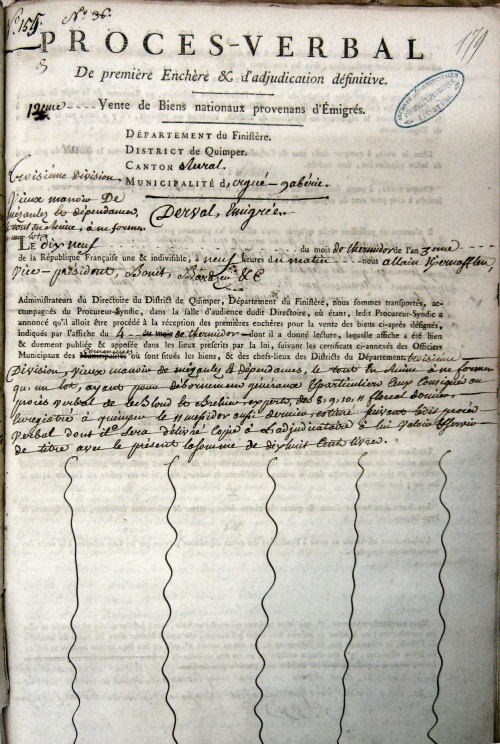 N.º 155. N.º 36.
179
PROCES-VERBAL
De premiére Enchère & d'adjudication définitive.
12eme Vente de Biens nationaux provenans d'Émigrés.
DÉPARTEMENT du Finistère.
DISTRICT de Quimper.
CANTON Rural
MUNICIPALITÉ d'ergué-gabérie.
troisieme division
Vieux manoir De
mézanlez & dépendances,
tout en ruine, à ne former
un lot.
Derval, Émigrée.
LE dix neuf du mois de thermidor de l'an 3eme
de la République Française une & indivisible, à neuf heures du matin nous allain
Vice-président, Bonit,
Administrateurs du Directoire du District de Quimper, Département du Finistère, nous sommes transportés, ac-
compagnés du Procureur-Syndic, dans la salle d'audience dudit Directoire, où étant, ledit Procureur-Syndic a
annoncé qu'il alloit être procédé à la réception des premières enchères pour la vente des biens ci-après désignés,
indiqués par l'affiche du 4 du mois de thermidor dont il a donné lecture, laquelle affiche a été bien
& duement publiée & apposée dans les lieux prescrits par la loi, suivant les certificats ci-annexés des Officiers
Municipaux des Communes où sont situés les biens, & des chefs-lieux des Districts du Département. troisieme
Division, Vieux manoir de mézanlez & dépendances, le tout en ruine à ne former
qu'un lot, ayant pour débornements généraux & particuliers ceux consignés au
procès verbal de LeBlond & experts, des 8, 9, 10, 11 floreal dernier,
enregistré à quimper le 11 messidor aussi dernier, estimé suivant ledit procès
verbal dont il sera délivré copie à L'adjudicataire & lui valoir & servir
de titre avec le présent la somme de dix huit Cent livres.